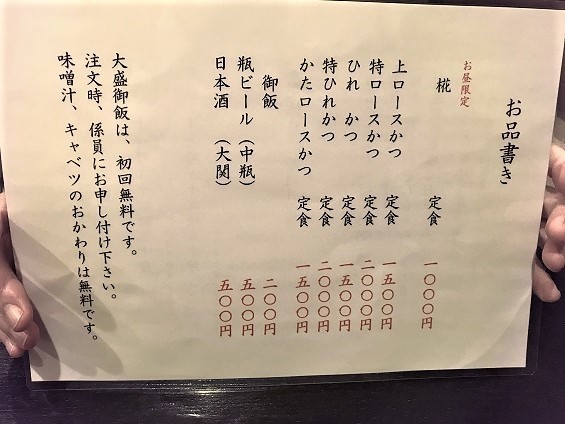 お品書き
お昼限定
椛 定食 一〇〇〇円
上ロースかつ 定食 一五〇〇円
特ロースかつ 定食 二〇〇〇円
ひれ かつ 定食 一五〇〇円
特ひれかつ 定食 二〇〇〇円
かたロースかつ 定食 一五〇〇円
御飯 二〇〇円
瓶ビール (中瓶) 五〇〇円
日本酒 (大関) 五〇〇円
大盛御飯は、初回無料です。
注文時、係員にお申し付け下さい。
味噌汁、キャベツのおかわりは無料です。